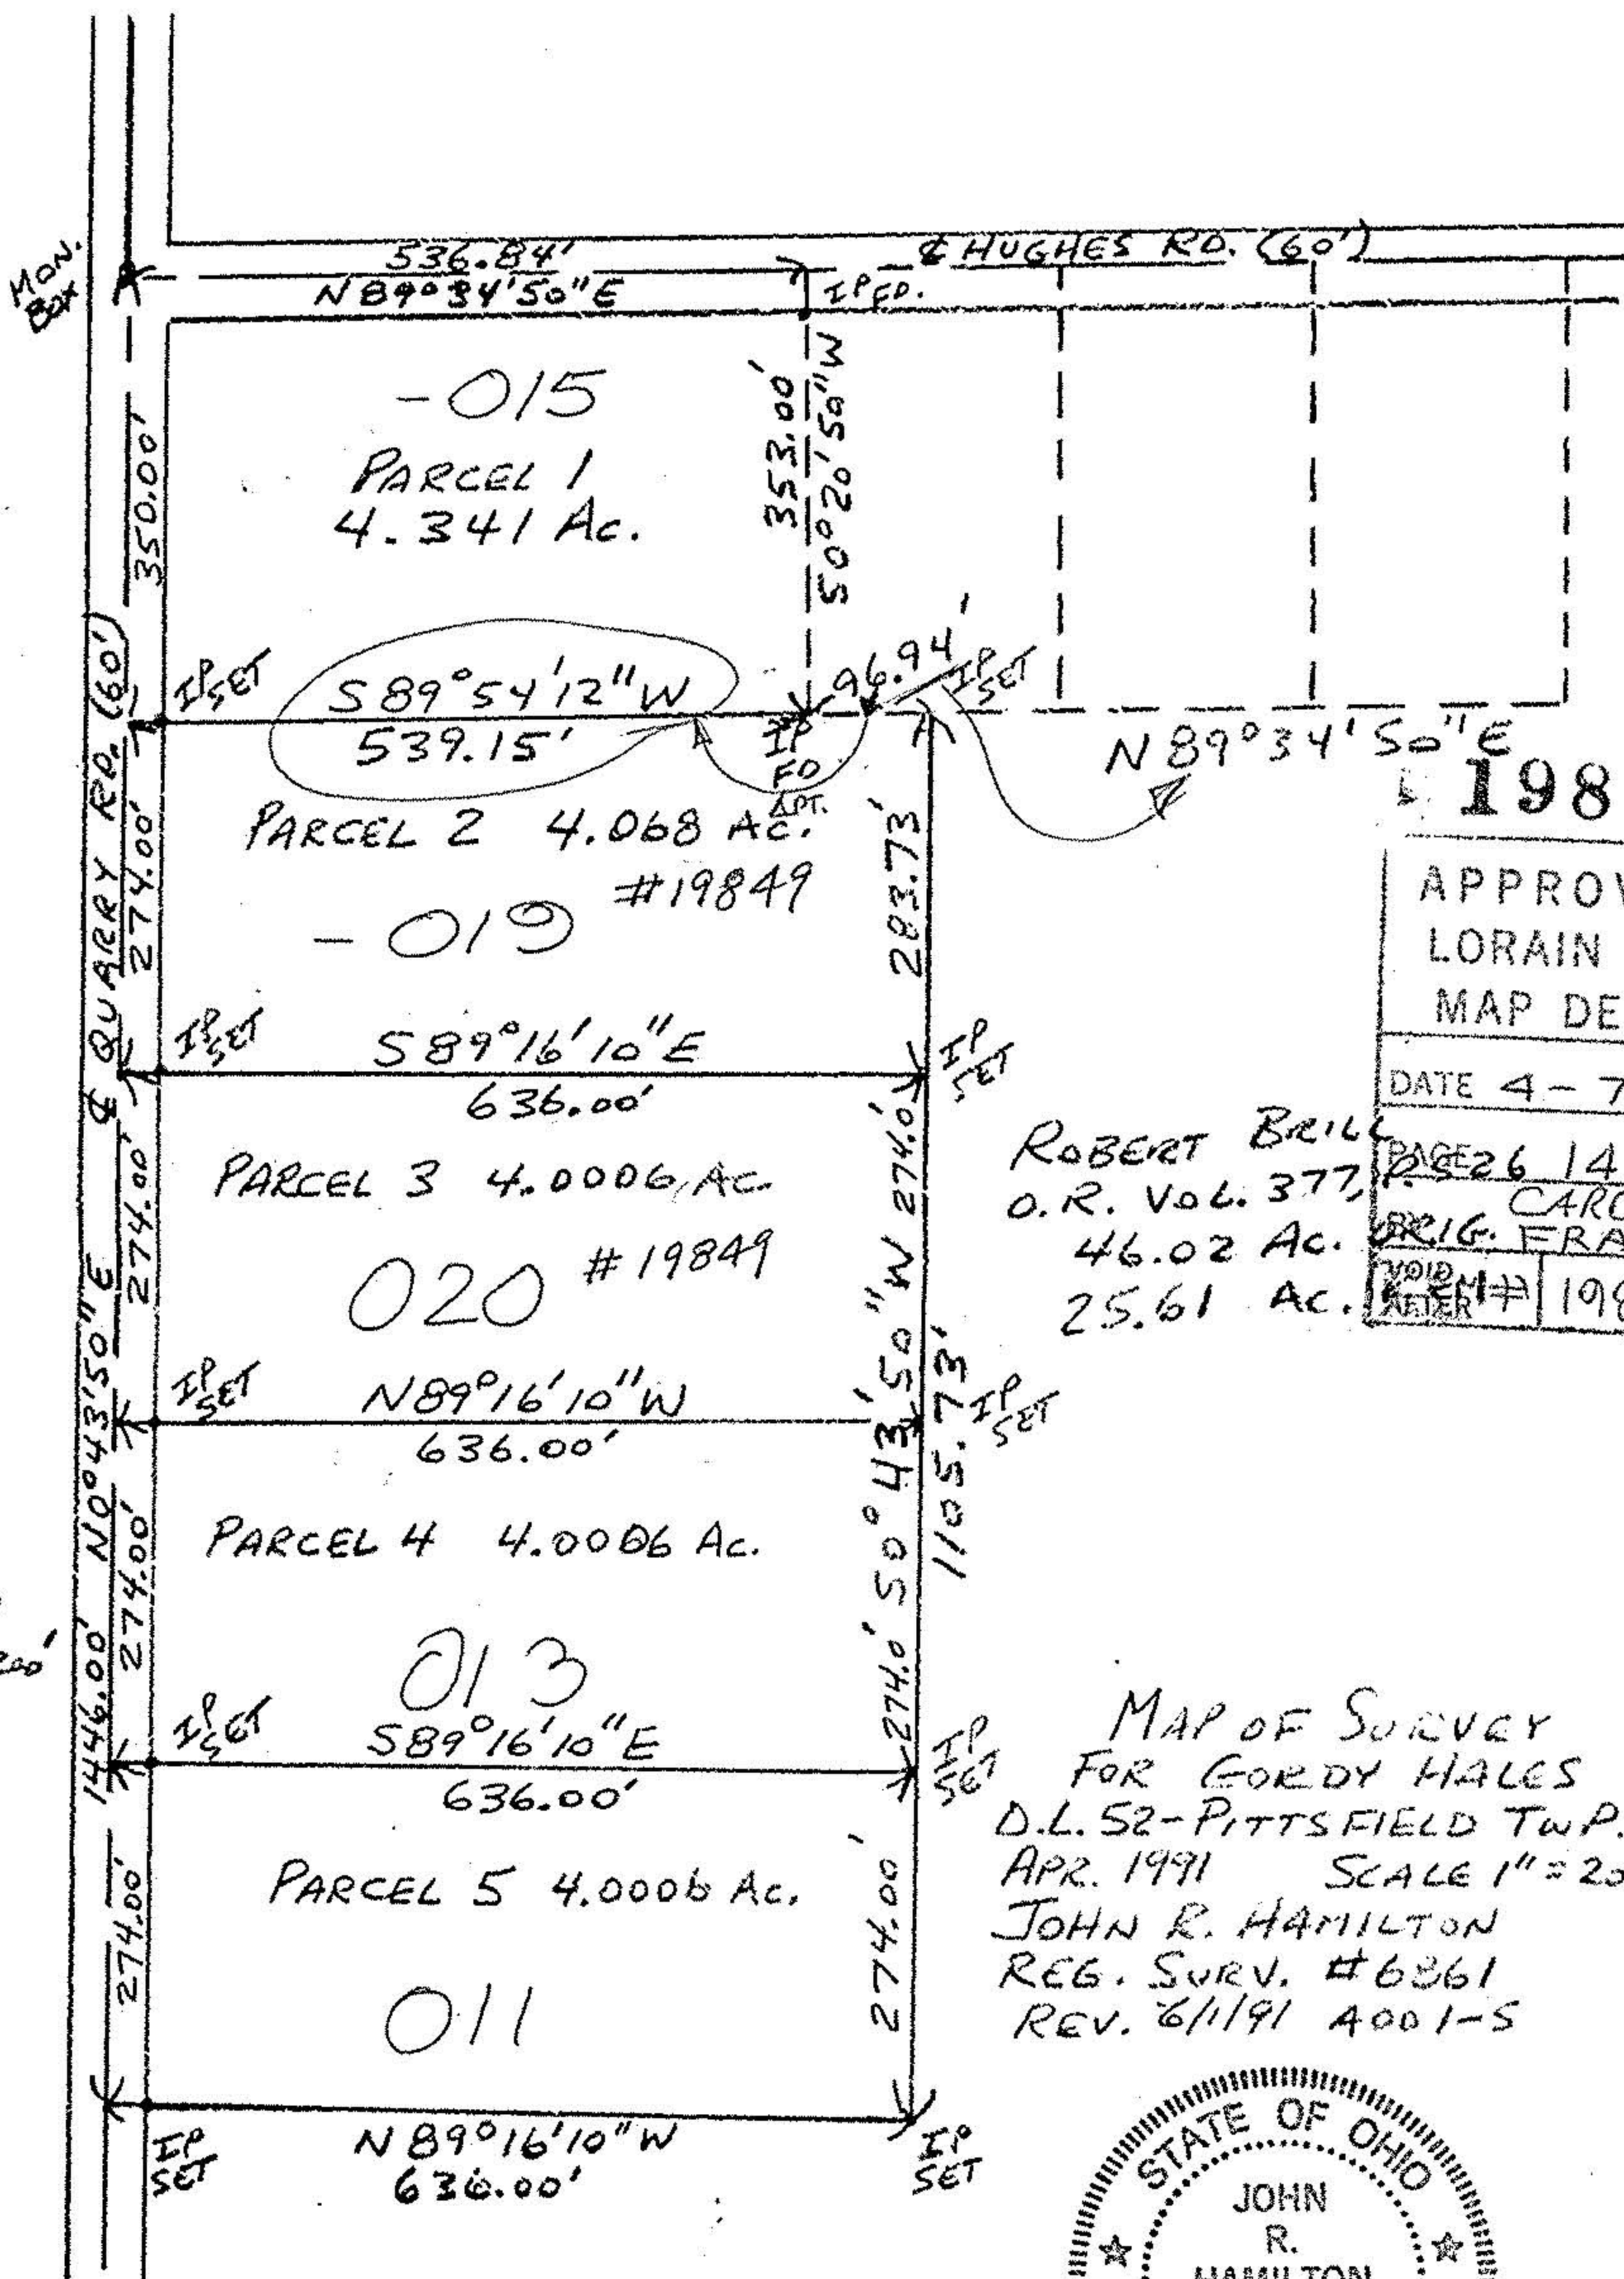 MON.
BOX
536.84'
N89°34'50"E
℄ HUGHES RD. (60')
IP FD.
-015
PARCEL 1
4.341 Ac.
350.00'
353.00'
S0°20'50"W
IP SET
S89°54'12"W
539.15'
96.94'
IP SET
IP
FD
N89°34'50"E
198
PARCEL 2 4.068 AC.
#19849
-019
℄ QUARRY RD. (60')
274.00'
283.73'
APPROV
LORAIN
MAP DE
DATE 4-7
PAGE 26 14
CARO
ORIG. FRA
VOID
AFTER
198
IP SET
S89°16'10"E
636.00'
IP
SET
PARCEL 3 4.0006 AC.
020 #19849
274.00'
274.0'
ROBERT BRILL
O.R. VOL. 377,
46.02 AC.
25.61 AC.
IP SET
N89°16'10"W
636.00'
IP
SET
1446.00' N0°43'50"E
S0°43'50"W
1105.73'
PARCEL 4 4.0006 Ac.
013
274.00'
274.0'
200'
IP SET
S89°16'10"E
636.00'
IP
SET
PARCEL 5 4.0006 Ac.
011
274.00'
274.00'
IP
SET
N89°16'10"W
636.00'
IP
SET
MAP OF SURVEY
FOR GORDY HALES
D.L. 52-PITTSFIELD TWP.
APR. 1991 SCALE 1"=20
JOHN R. HAMILTON
REG. SURV. #6861
REV. 6/1/91 A001-S
STATE OF OHIO
JOHN
R.
HAMILTON